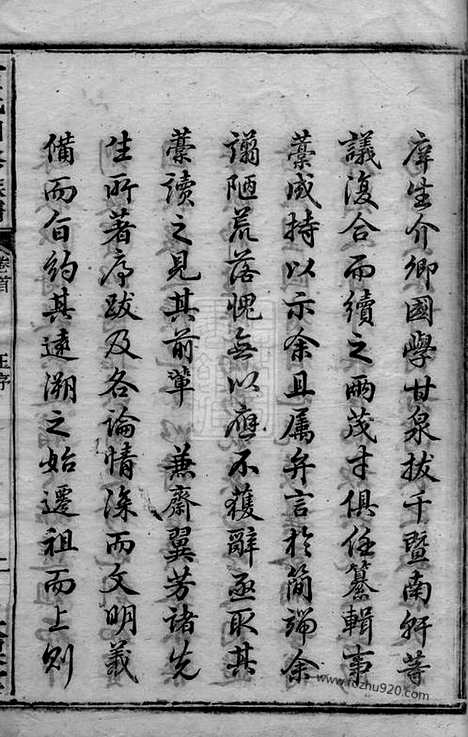 庠生介卿國學甘泉拔千暨南軒等
議復合而續之兩茂才俱任纂輯事
藁成持以示余且属弁言於簡端余
謭陋荒落愧無以應不獲辭亟取其
藁讀之見其前軰 蒹齋翼芳諸先
生所著序跋及各論情深而文明義
備而旨約其遠溯之始遷祖而上則
卷首
王序
www.fozhu920.com